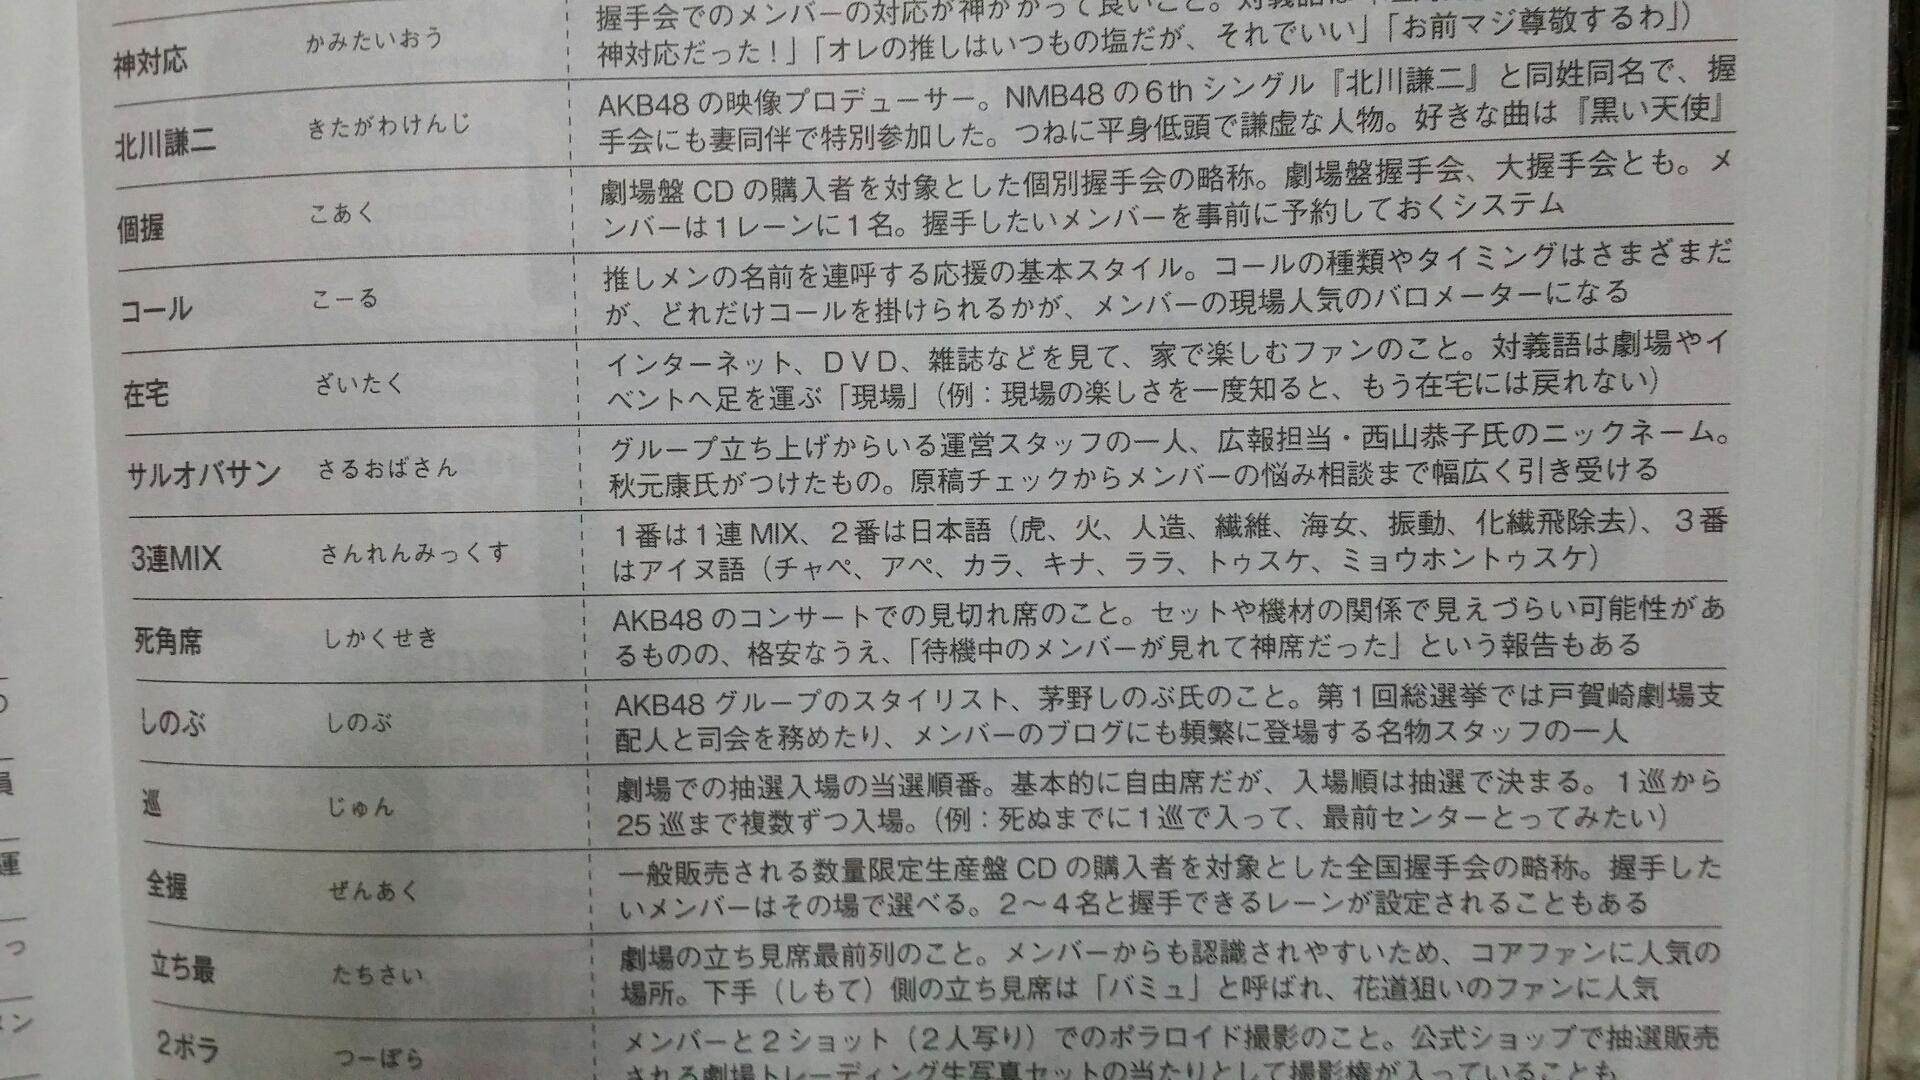 握手会でのメンバーの対応が神がかって良いこと。対義語は
神対応 かみたいおう
神対応だった！」「オレの推しはいつもの塩だが、それでいい」「お前マジ尊敬するわ」）
北川謙二 きたがわけんじ
AKB48の映像プロデューサー。NMB48の6thシングル『北川謙二』と同姓同名で、握
手会にも妻同伴で特別参加した。つねに平身低頭で謙虚な人物。好きな曲は『黒い天使』
個握 こあく
劇場盤CDの購入者を対象とした個別握手会の略称。劇場盤握手会、大握手会とも。メ
ンバーは1レーンに1名。握手したいメンバーを事前に予約しておくシステム
コール こーる
推しメンの名前を連呼する応援の基本スタイル。コールの種類やタイミングはさまざまだ
が、どれだけコールを掛けられるかが、メンバーの現場人気のバロメーターになる
在宅 ざいたく
インターネット、DVD、雑誌などを見て、家で楽しむファンのこと。対義語は劇場やイ
ベントへ足を運ぶ「現場」（例：現場の楽しさを一度知ると、もう在宅には戻れない）
サルオバサン さるおばさん
グループ立ち上げからいる運営スタッフの一人、広報担当・西山恭子氏のニックネーム。
秋元康氏がつけたもの。原稿チェックからメンバーの悩み相談まで幅広く引き受ける
3連MIX さんれんみっくす
1番は1連MIX、2番は日本語（虎、火、人造、繊維、海女、振動、化繊飛除去）、3番
はアイヌ語（チャペ、アペ、カラ、キナ、ララ、トゥスケ、ミョウホントゥスケ）
死角席 しかくせき
AKB48のコンサートでの見切れ席のこと。セットや機材の関係で見えづらい可能性があ
るものの、格安なうえ、「待機中のメンバーが見れて神席だった」という報告もある
しのぶ しのぶ
AKB48グループのスタイリスト、茅野しのぶ氏のこと。第1回総選挙では戸賀崎劇場支
配人と司会を務めたり、メンバーのブログにも頻繁に登場する名物スタッフの一人
巡 じゅん
劇場での抽選入場の当選順番。基本的に自由席だが、入場順は抽選で決まる。1巡から
25巡まで複数ずつ入場。（例：死ぬまでに1巡で入って、最前センターとってみたい）
全握 ぜんあく
一般販売される数量限定生産盤CDの購入者を対象とした全国握手会の略称。握手した
いメンバーはその場で選べる。2〜4名と握手できるレーンが設定されることもある
立ち最 たちさい
劇場の立ち見席最前列のこと。メンバーからも認識されやすいため、コアファンに人気の
場所。下手（しもて）側の立ち見席は「バミュ」と呼ばれ、花道狙いのファンに人気
2ポラ つーぽら
メンバーと2ショット（2人写り）でのポラロイド撮影のこと。公式ショップで抽選販売
される劇場トレーディング生写真セットの当たりとして撮影権が入っていることも